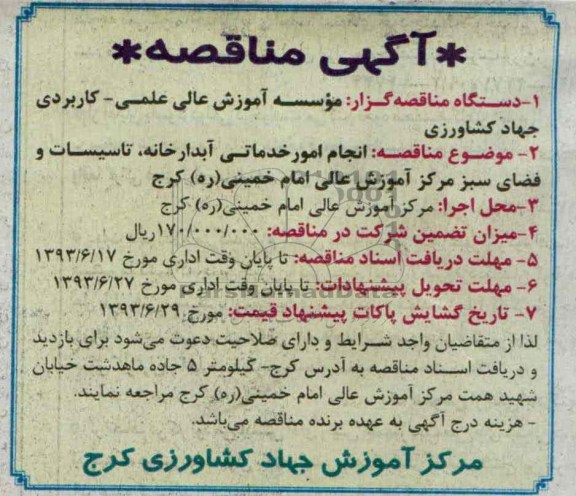 *آگهی مناقصه*
۱-دستگاه مناقصه‌گزار: مؤسسه آموزش عالی علمی- کاربردی
جهاد کشاورزی
۲- موضوع مناقصه: انجام امورخدماتی آبدارخانه، تاسیسات و
فضای سبز مرکز آموزش عالی امام خمینی(ره) کرج
۳-محل اجرا: مرکز آموزش عالی امام خمینی(ره) کرج
۴-میزان تضمین شرکت در مناقصه: ۱۷۰/۰۰۰/۰۰۰ریال
۵- مهلت دریافت اسناد مناقصه: تا پایان وقت اداری مورخ ۱۳۹۳/۶/۱۷
۶- مهلت تحویل پیشنهادات: تا پایان وقت اداری مورخ ۱۳۹۳/۶/۲۷
۷- تاریخ گشایش پاکات پیشنهاد قیمت: مورخ ۱۳۹۳/۶/۲۹
لذا از متقاضیان واجد شرایط و دارای صلاحیت دعوت می‌شود برای بازدید
و دریافت اسناد مناقصه به آدرس کرج- گیلومتر ۵ جاده ماهدشت خیابان
شهید همت مرکز آموزش عالی امام خمینی(ره) کرج مراجعه نمایند.
- هزینه درج آگهی به عهده برنده مناقصه می‌باشد.
مرکز آموزش جهاد کشاورزی کرج